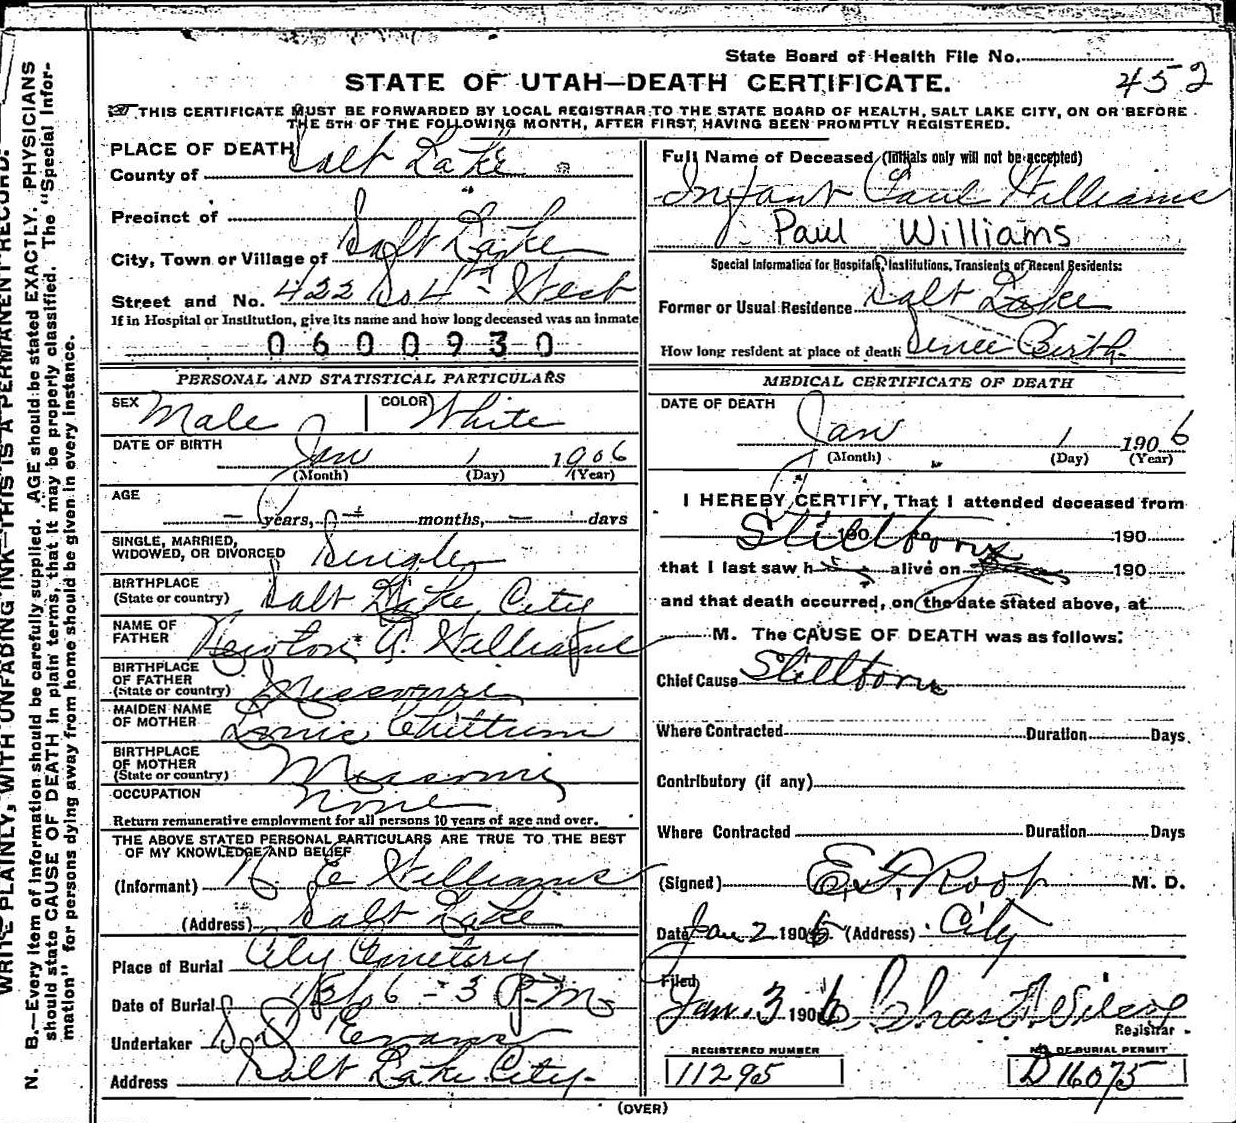 State Board of Health File No.
452
STATE OF UTAH—DEATH CERTIFICATE.
THIS CERTIFICATE MUST BE FORWARDED BY LOCAL REGISTRAR TO THE STATE BOARD OF HEALTH, SALT LAKE CITY, ON OR BEFORE
THE 5TH OF THE FOLLOWING MONTH, AFTER FIRST HAVING BEEN PROMPTLY REGISTERED.
WRITE PLAINLY, WITH UNFADING INK—THIS IS A PERMANENT RECORD.
N. B.—Every item of information should be carefully supplied. AGE should be stated EXACTLY. PHYSICIANS
should state CAUSE OF DEATH in plain terms, that it may be properly classified. The "Special Infor-
mation" for persons dying away from home should be given in every instance.
PLACE OF DEATH
County of Salt Lake
Precinct of
City, Town or Village of Salt Lake
Street and No. 422 So 4th West
If in Hospital or Institution, give its name and how long deceased was an inmate
0600930
PERSONAL AND STATISTICAL PARTICULARS
SEX Male COLOR White
DATE OF BIRTH Jan 1 1906
(Month) (Day) (Year)
AGE
— years, months, — days
SINGLE, MARRIED,
WIDOWED, OR DIVORCED Single
BIRTHPLACE
(State or country) Salt Lake City
NAME OF
FATHER Newton A. Williams
BIRTHPLACE
OF FATHER
(State or country) Missouri
MAIDEN NAME
OF MOTHER Chittum
BIRTHPLACE
OF MOTHER
(State or country) Missouri
OCCUPATION None
Return remunerative employment for all persons 10 years of age and over.
THE ABOVE STATED PERSONAL PARTICULARS ARE TRUE TO THE BEST
OF MY KNOWLEDGE AND BELIEF
(Informant) E Williams
(Address) Salt Lake
Place of Burial City Cemetery
Date of Burial 1/3/06 - 3 P.M.
Undertaker Evans
Address Salt Lake City.
Full Name of Deceased (Initials only will not be accepted)
Infant Paul Williams
Paul Williams
Special Information for Hospitals, Institutions, Transients or Recent Residents:
Former or Usual Residence Salt Lake
How long resident at place of death Since Birth
MEDICAL CERTIFICATE OF DEATH
DATE OF DEATH
Jan 1 1906
(Month) (Day) (Year)
I HEREBY CERTIFY, That I attended deceased from
Stillborn 190
that I last saw h alive on 190
and that death occurred, on the date stated above, at
M. The CAUSE OF DEATH was as follows:
Chief Cause Stillborn
Where Contracted Duration Days
Contributory (if any)
Where Contracted Duration Days
(Signed) Root M. D.
Date Jan 2 1906 (Address) City
Filed
Jan. 3 1906 Chas F. Wilcox
Registrar
REGISTERED NUMBER
11295
NO. OF BURIAL PERMIT
D 16075
(OVER)